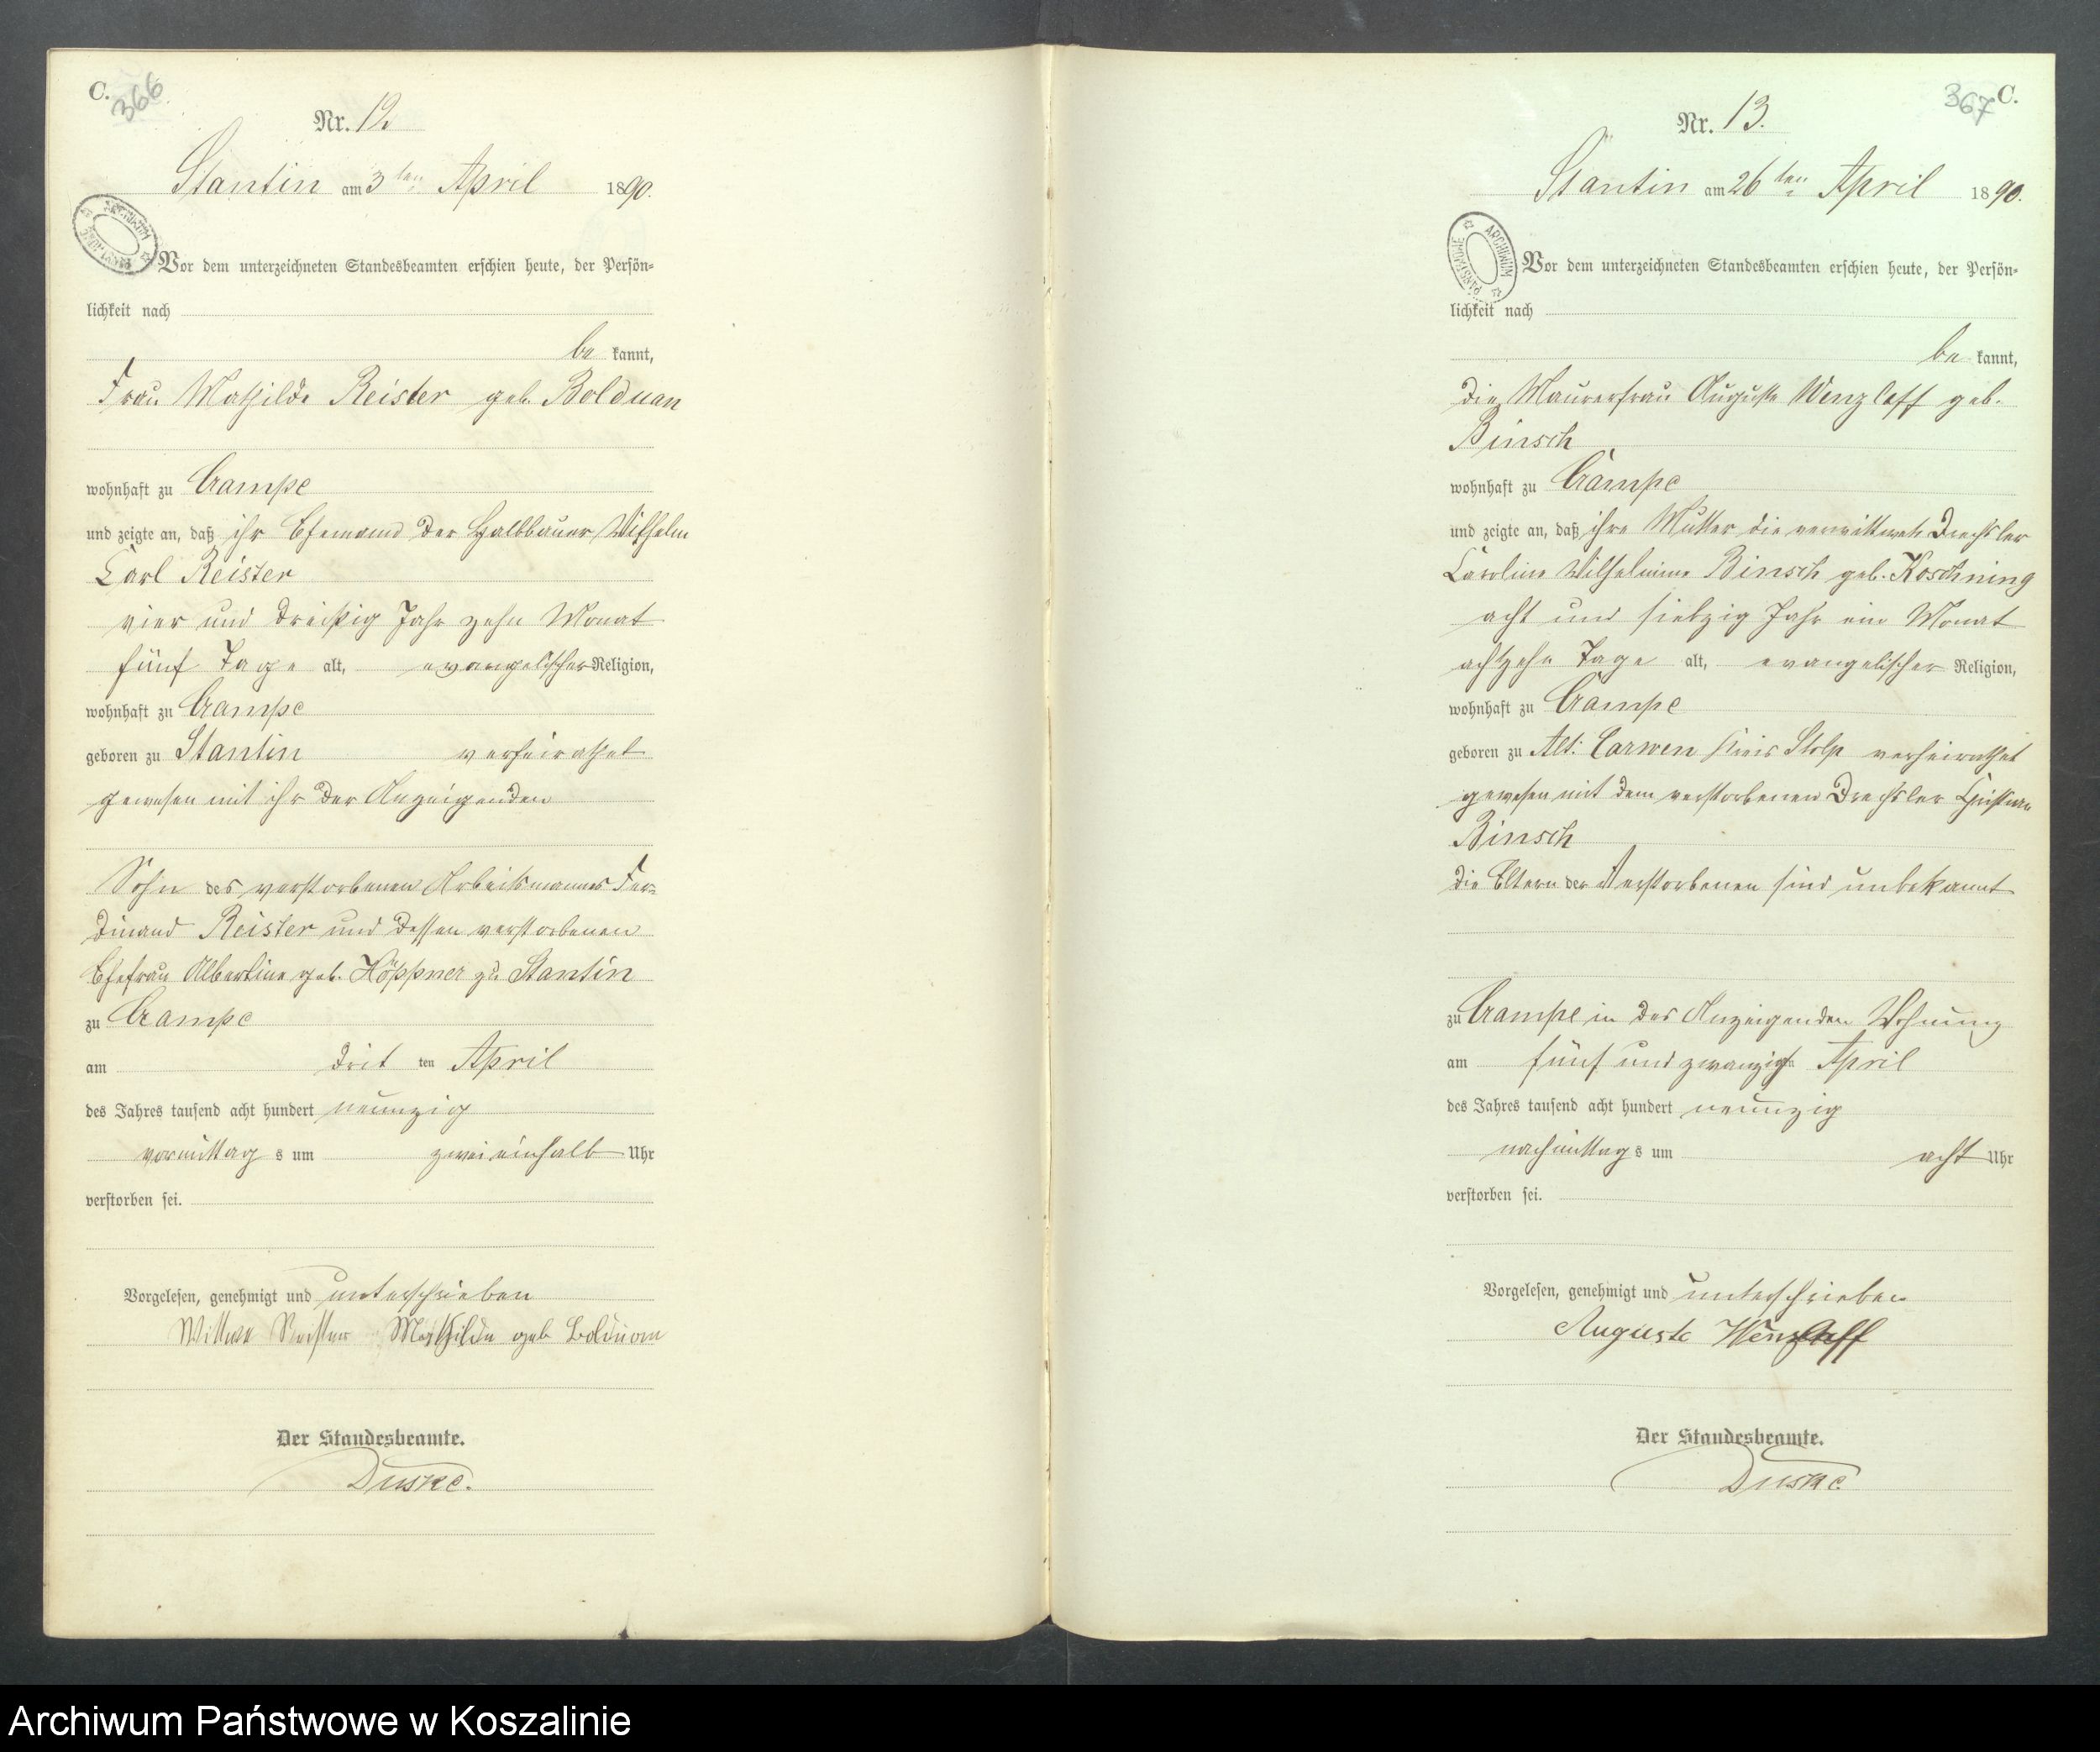 C.
366
Nr. 12
Stantin am 3ten April 1890.
Vor dem unterzeichneten Standesbeamten erschien heute, der Persön=
lichkeit nach
be kannt,
Frau Mathilde Reister geb. Bolduan
wohnhaft zu Crampe
und zeigte an, daß ihr Ehemann der Halbbauer Wilhelm
Carl Reister
vier und dreißig Jahr zehn Monat
fünf Tage alt, evangelischer Religion,
wohnhaft zu Crampe
geboren zu Stantin verheirathet
gewesen mit ihr der Anzeigenden
Sohn des verstorbenen Arbeitsmannes Fer=
dinand Reister und dessen verstorbenen
Ehefrau Albertine geb. Höppner zu Stantin
zu Crampe
am drit ten April
des Jahres tausend acht hundert neunzig
vormittag s um zwei einhalb Uhr
verstorben sei.
Vorgelesen, genehmigt und unterschrieben
Wittwe Reister Mathilde geb Bolduan
Der Standesbeamte.
Duske.
367 C.
Nr. 13.
Stantin am 26ten April 1890.
ARCHIWUM PAŃSTWOWE
Vor dem unterzeichneten Standesbeamten erschien heute, der Persön=
lichkeit nach
be kannt,
die Maurerfrau Auguste Wenzlaff geb.
Binsch
wohnhaft zu Crampe
und zeigte an, daß ihre Mutter die verwittwete Drechsler
Caroline Wilhelmine Binsch geb. Koschning
acht und siebzig Jahr ein Monat
achtzehn Tage alt, evangelischer Religion,
wohnhaft zu Crampe
geboren zu Alt: Carwen Kreis Stolp verheirathet
gewesen mit dem verstorbenen Drechsler Christian
Binsch
die Eltern der Verstorbenen sind unbekannt
zu Crampe in der Anzeigenden Wohnung
am fünf und zwanzigten April
des Jahres tausend acht hundert neunzig
nachmittag s um acht Uhr
verstorben sei.
Vorgelesen, genehmigt und unterschrieben
Auguste Wenzlaff
Der Standesbeamte.
Duske
Archiwum Państwowe w Koszalinie